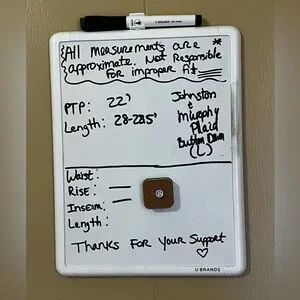 All measurements are *
approximate. Not Responsible
for improper fit
PTP: 22"
Length: 28-28.5"
Johnston
&
Murphy
Plaid
Button Down
(L)
Waist:
Rise:
Inseam:
Length:
Thanks For Your Support
U BRANDS